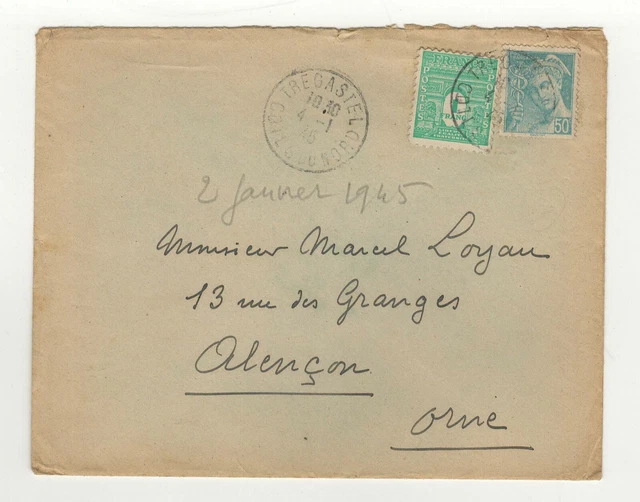 TREGASTEL
10 30
4 -1
DU NORD
FRANC
POSTES
POSTES
FRANC
TRE
50
2 Janvier 1945
Monsieur Marcel Loyau
13 rue des Granges
Alençon
Orne